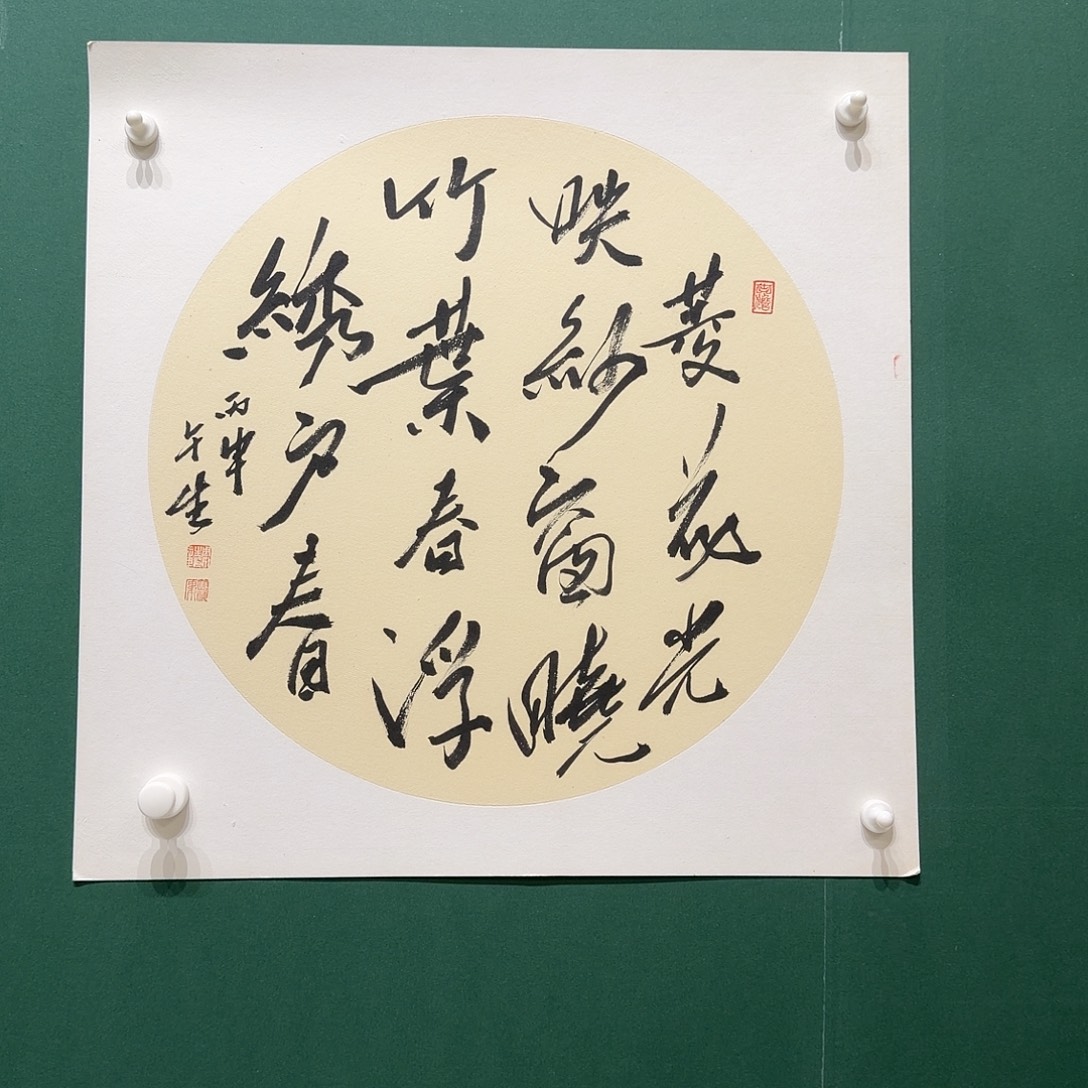 菱花光
映紗窗曉
竹葉春浮
綉户春
丙申
午生